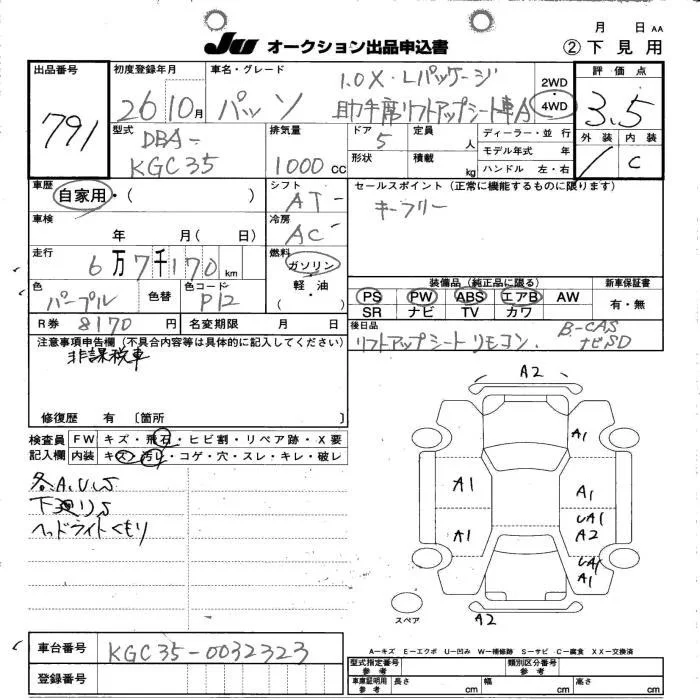 月 日 AA
JU オークション出品申込書 ②下見用
出品番号 初度登録年月 車名・グレード 評価点
791 26 10月 パッソ 1.0X・Lパッケージ 2WD 3.5
助手席リフトアップシート車A 4WD
型式 排気量 ドア 定員 ディーラー・並行 外装 内装
DBA- 5 人 モデル年式 年 C
KGC35 1000cc 形状 積載 kg ハンドル 左・右
車歴 シフト セールスポイント (正常に機能するものに限ります)
自家用・( ) AT- キーフリー
車検 冷房
年 月(日) AC-
走行 燃料
6万7千170km ガソリン 装備品 (純正品に限る) 新車保証書
色 色替 色コード 軽油 PS PW ABS エアB AW 有・無
パープル P12 ・( ) SR ナビ TV カワ
R券 8170円 名変期限 月 日 後日品 B-CAS
注意事項申告欄 (不具合内容等は具体的に記入してください) リフトアップシートリモコン. ナビSD
非課税車
修復歴 有 〔箇所 〕
検査員 FW キズ・飛石・ヒビ割・リペア跡・X要
記入欄 内装 キズ・汚レ・コゲ・穴・スレ・キレ・破レ
各A.U.S
下廻りS
ヘッドライトくもり
A2
A1
A1 A1
UA1
A1 A2
UA1
A1
スペア A2
車台番号 KGC35-0032323
登録番号
A-キズ E-エクボ U-凹み W-補修跡 S-サビ C-腐食 XX-交換済
型式指定番号 類別区分番号
参考 参考
車庫証明用 長さ 幅 高さ
参考 cm cm cm